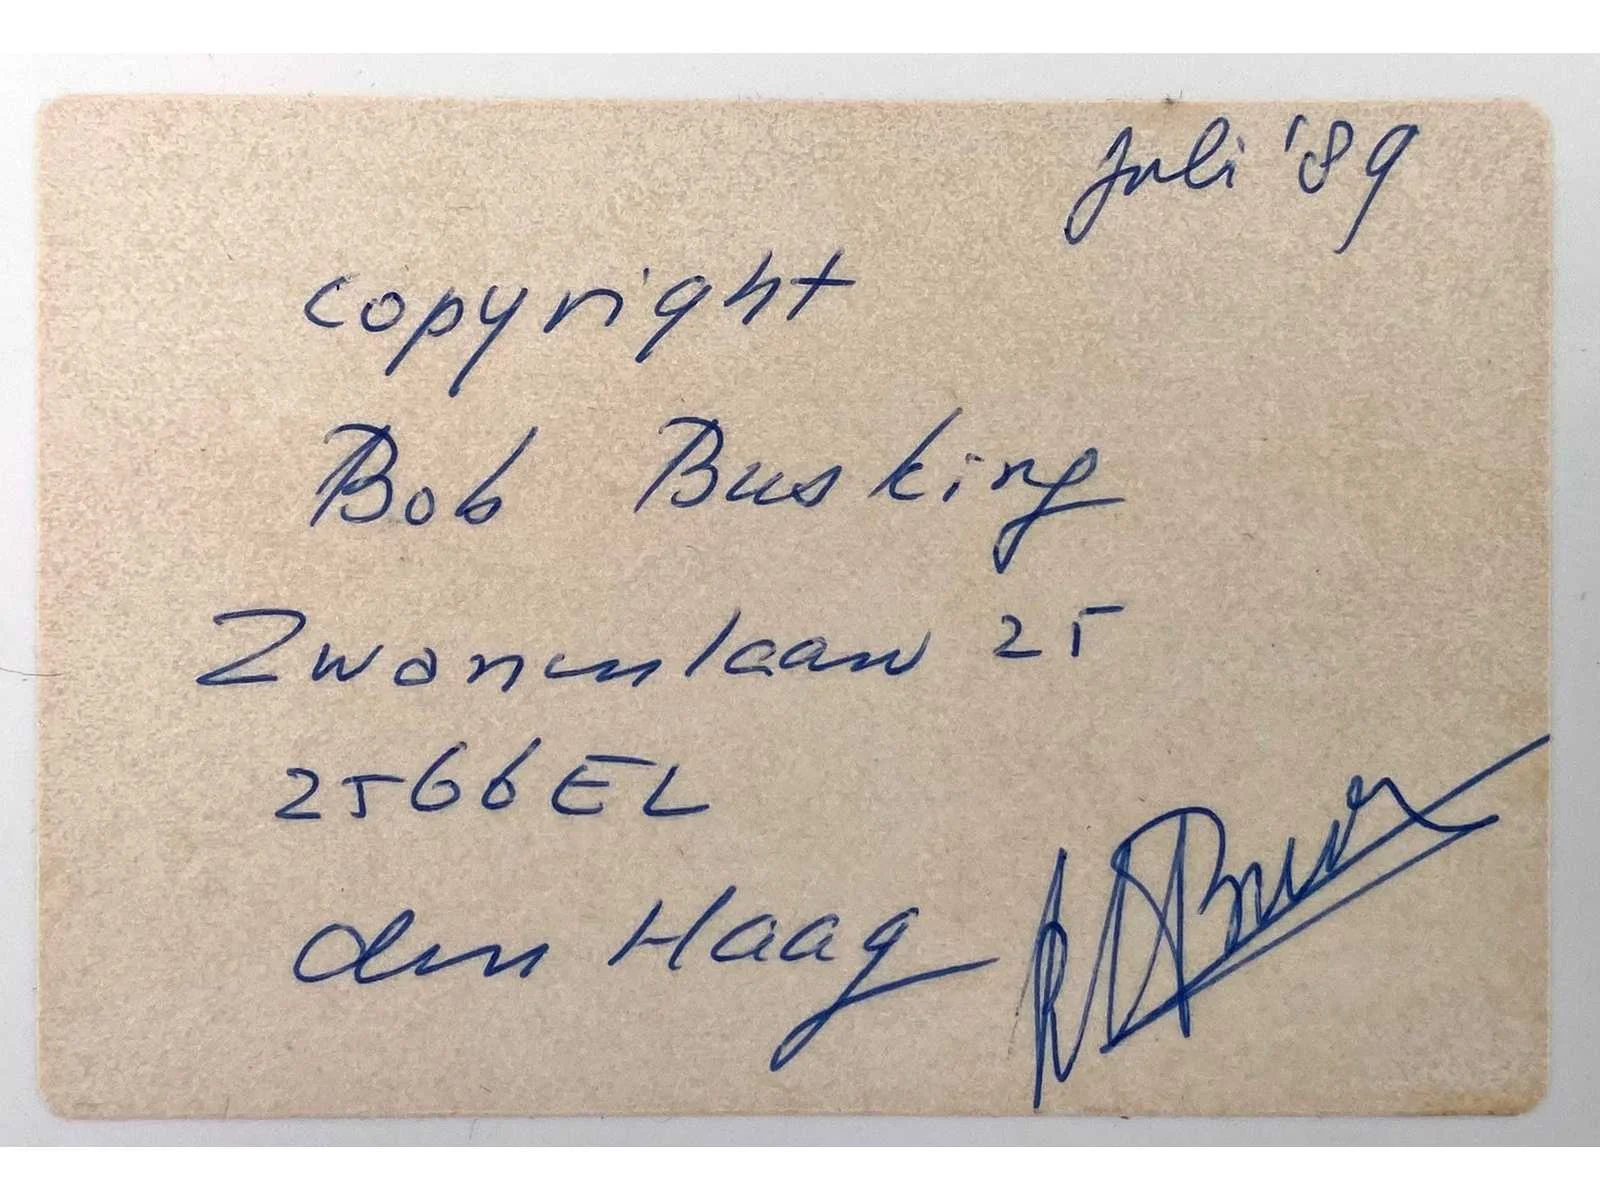 juli '89
copyright
Bob Busking
Zwanenlaan 25
2566EL
den Haag